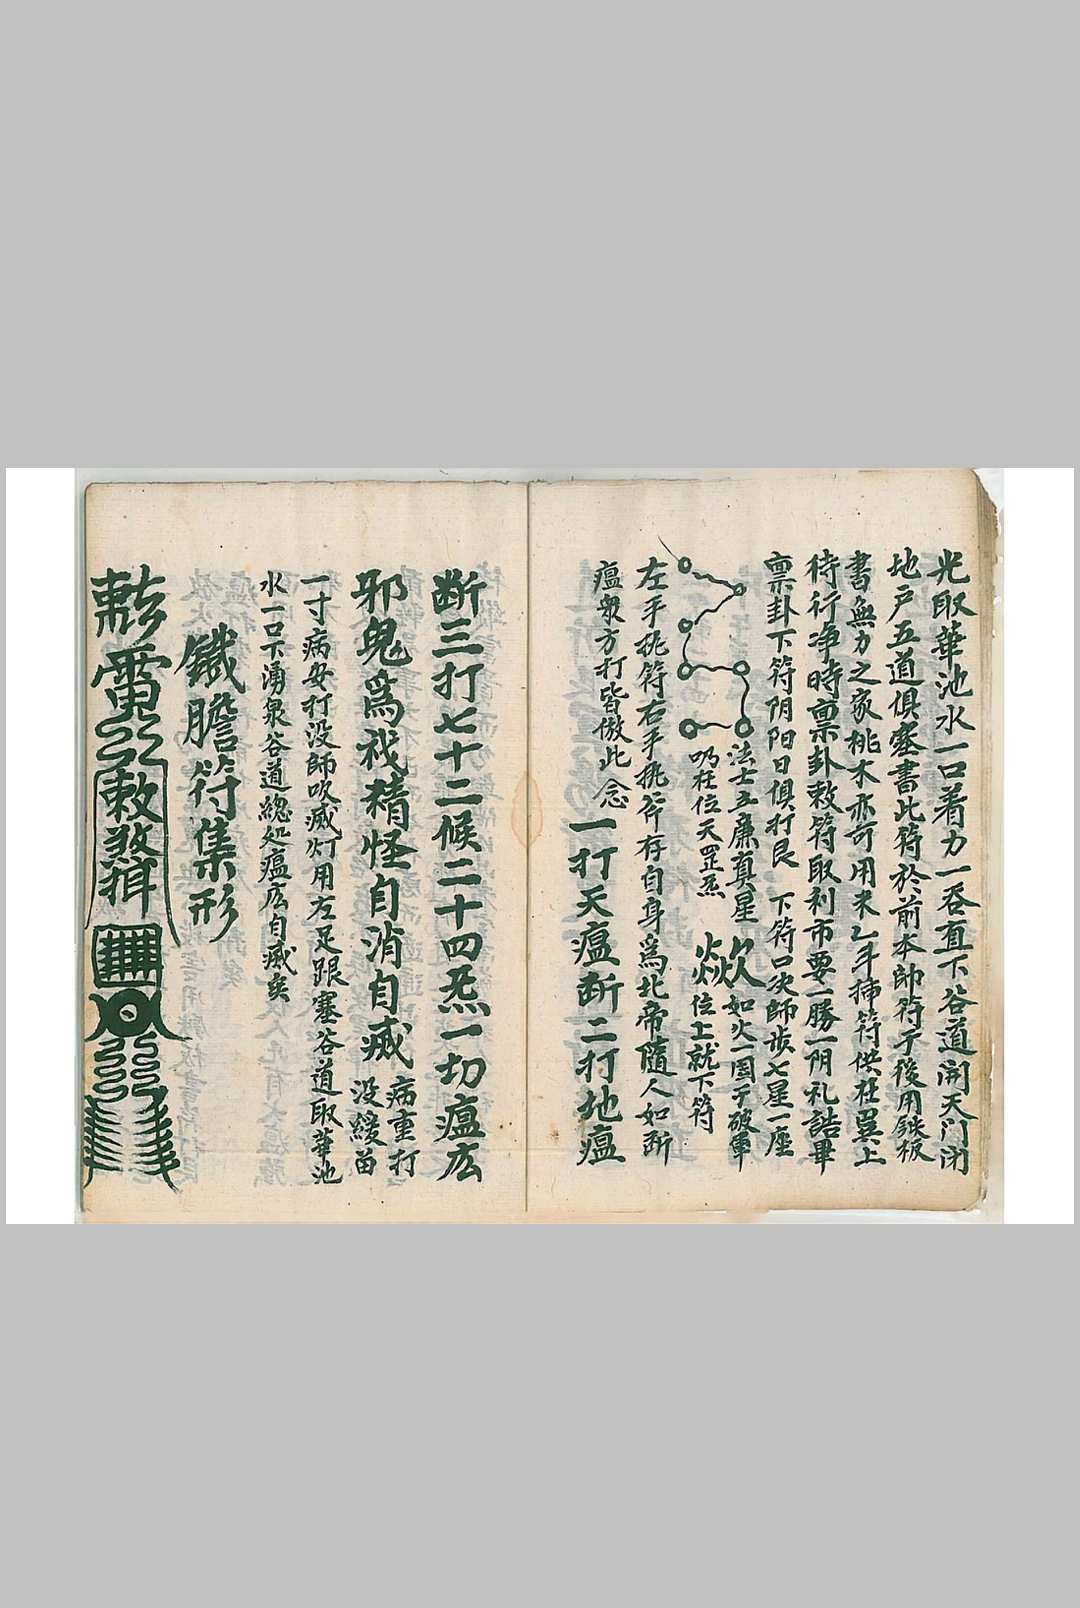 光取華池水一口着力一吞直下谷道開天门闭
地户五道俱塞書此符於前本師符于後用鉄板
書無力之家桃木亦可用米乙斗揷符供在巽上
待行净時禀卦敕符取利市要一勝一阴礼誥畢
禀卦下符阴阳日俱打艮 下符口决師步七星一座
法士立廉真星 如火一圓于破軍
仍在位天罡炁 位上就下符
左手执符右手执斧存自身爲北帝隨人如斷
瘟衆方打皆倣此念一打天瘟断二打地瘟
断三打七十二候二十四炁一切瘟広
邪鬼爲祅精怪自消自滅 病重打
没緩苗
一寸病安打没師吹滅灯用左足跟塞谷道取華池
水一口下湧泉谷道緫処瘟広自滅矣
鐵膽符集形
敕煞